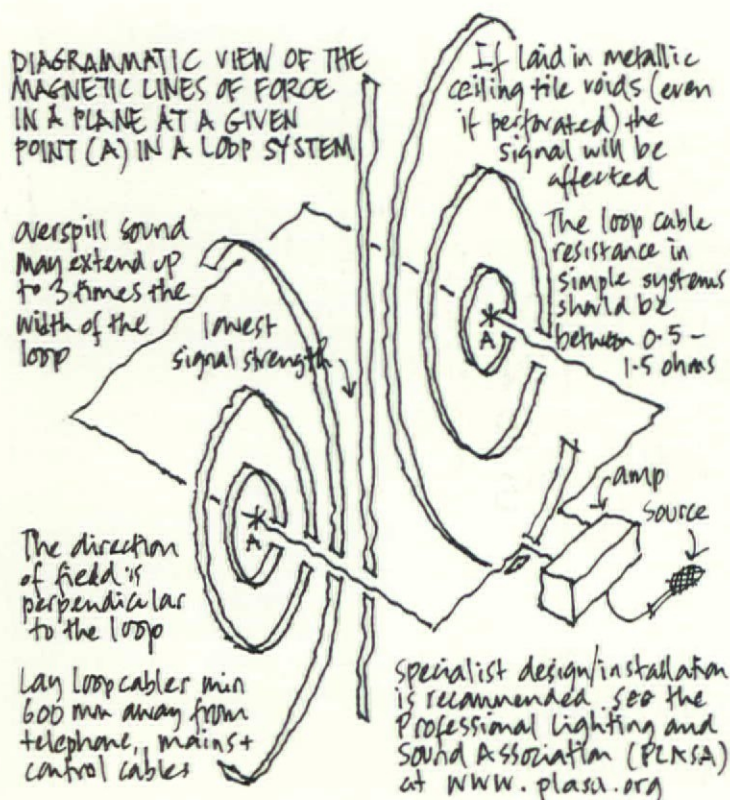 DIAGRAMMATIC VIEW OF THE
MAGNETIC LINES OF FORCE
IN A PLANE AT A GIVEN
POINT (A) IN A LOOP SYSTEM
If laid in metallic
ceiling tile voids (even
if perforated) the
signal will be
affected
overspill sound
may extend up
to 3 times the
width of the
loop
lowest
signal strength
The loop cable
resistance in
simple systems
should be
between 0.5 -
1.5 ohms
A
A
amp
source
The direction
of field is
perpendicular
to the loop
Lay loop cables min
600 mm away from
telephone, mains +
control cables
Specialist design/installation
is recommended see the
Professional Lighting and
Sound Association (PLASA)
at www.plasa.org